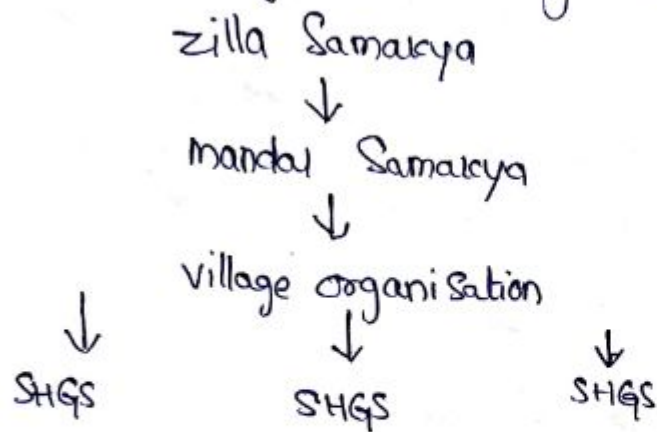 zilla Samakya
↓
mandal Samakya
↓
village organisation
↓ ↓ ↓
SHGS SHGS SHGS